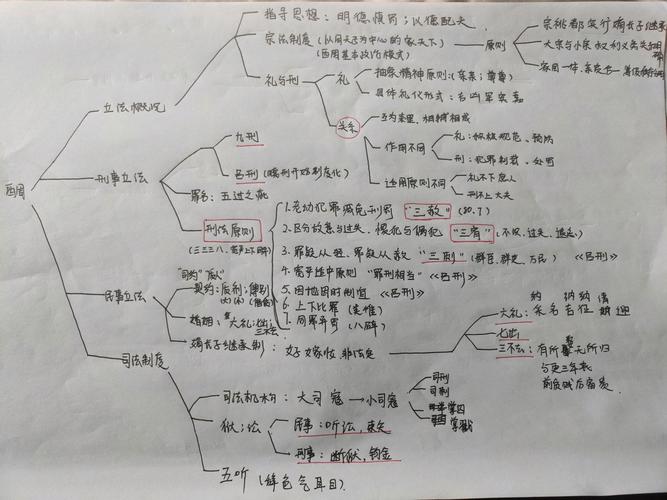 西周
立法概况
指导思想：明德慎罚；以德配天
宗法制度（以周天子为中心的家天下）
（西周基本政治模式）
原则
宗祧都实行嫡长子继承
大宗与小宗权利义务
家国一体，亲贵合一
礼与刑
礼
抽象精神原则：(亲亲；尊尊)
具体礼仪形式：吉凶军宾嘉
关系
互为表里，相辅相成
作用不同
礼：积极规范、预防
刑：犯罪制裁、处罚
适用原则不同
礼不下庶人
刑不上大夫
刑事立法
九刑
吕刑（赎刑开始制度化）
罪名：五过之疵
刑法原则
1.老幼犯罪减免刑罚 "三赦"
2.区分故意与过失、惯犯与偶犯 "三宥"（不识、过失、遗忘）
3.罪疑从轻、罪疑从赦 "三刺"（群臣、群吏、万民）《吕刑》
4.宽严适中原则 "罪刑相当"《吕刑》
5.因地因时制宜《吕刑》
6.上下比罪（类推）
7.同罪异罚（八辟）
民事立法
契约：质剂；傅别
婚姻：六礼；七出；三不去
嫡长子继承制
六礼：
纳采 问名 纳吉 纳征 请期 亲迎
七出
三不去：有所娶无所归
与更三年丧
前贫贱后富贵
司法制度
司法机构：大司寇→小司寇
司刑
司刺
掌囚
掌戮
狱；讼
民事：听讼，束矢
刑事：断狱，钧金
五听（辞色气耳目）